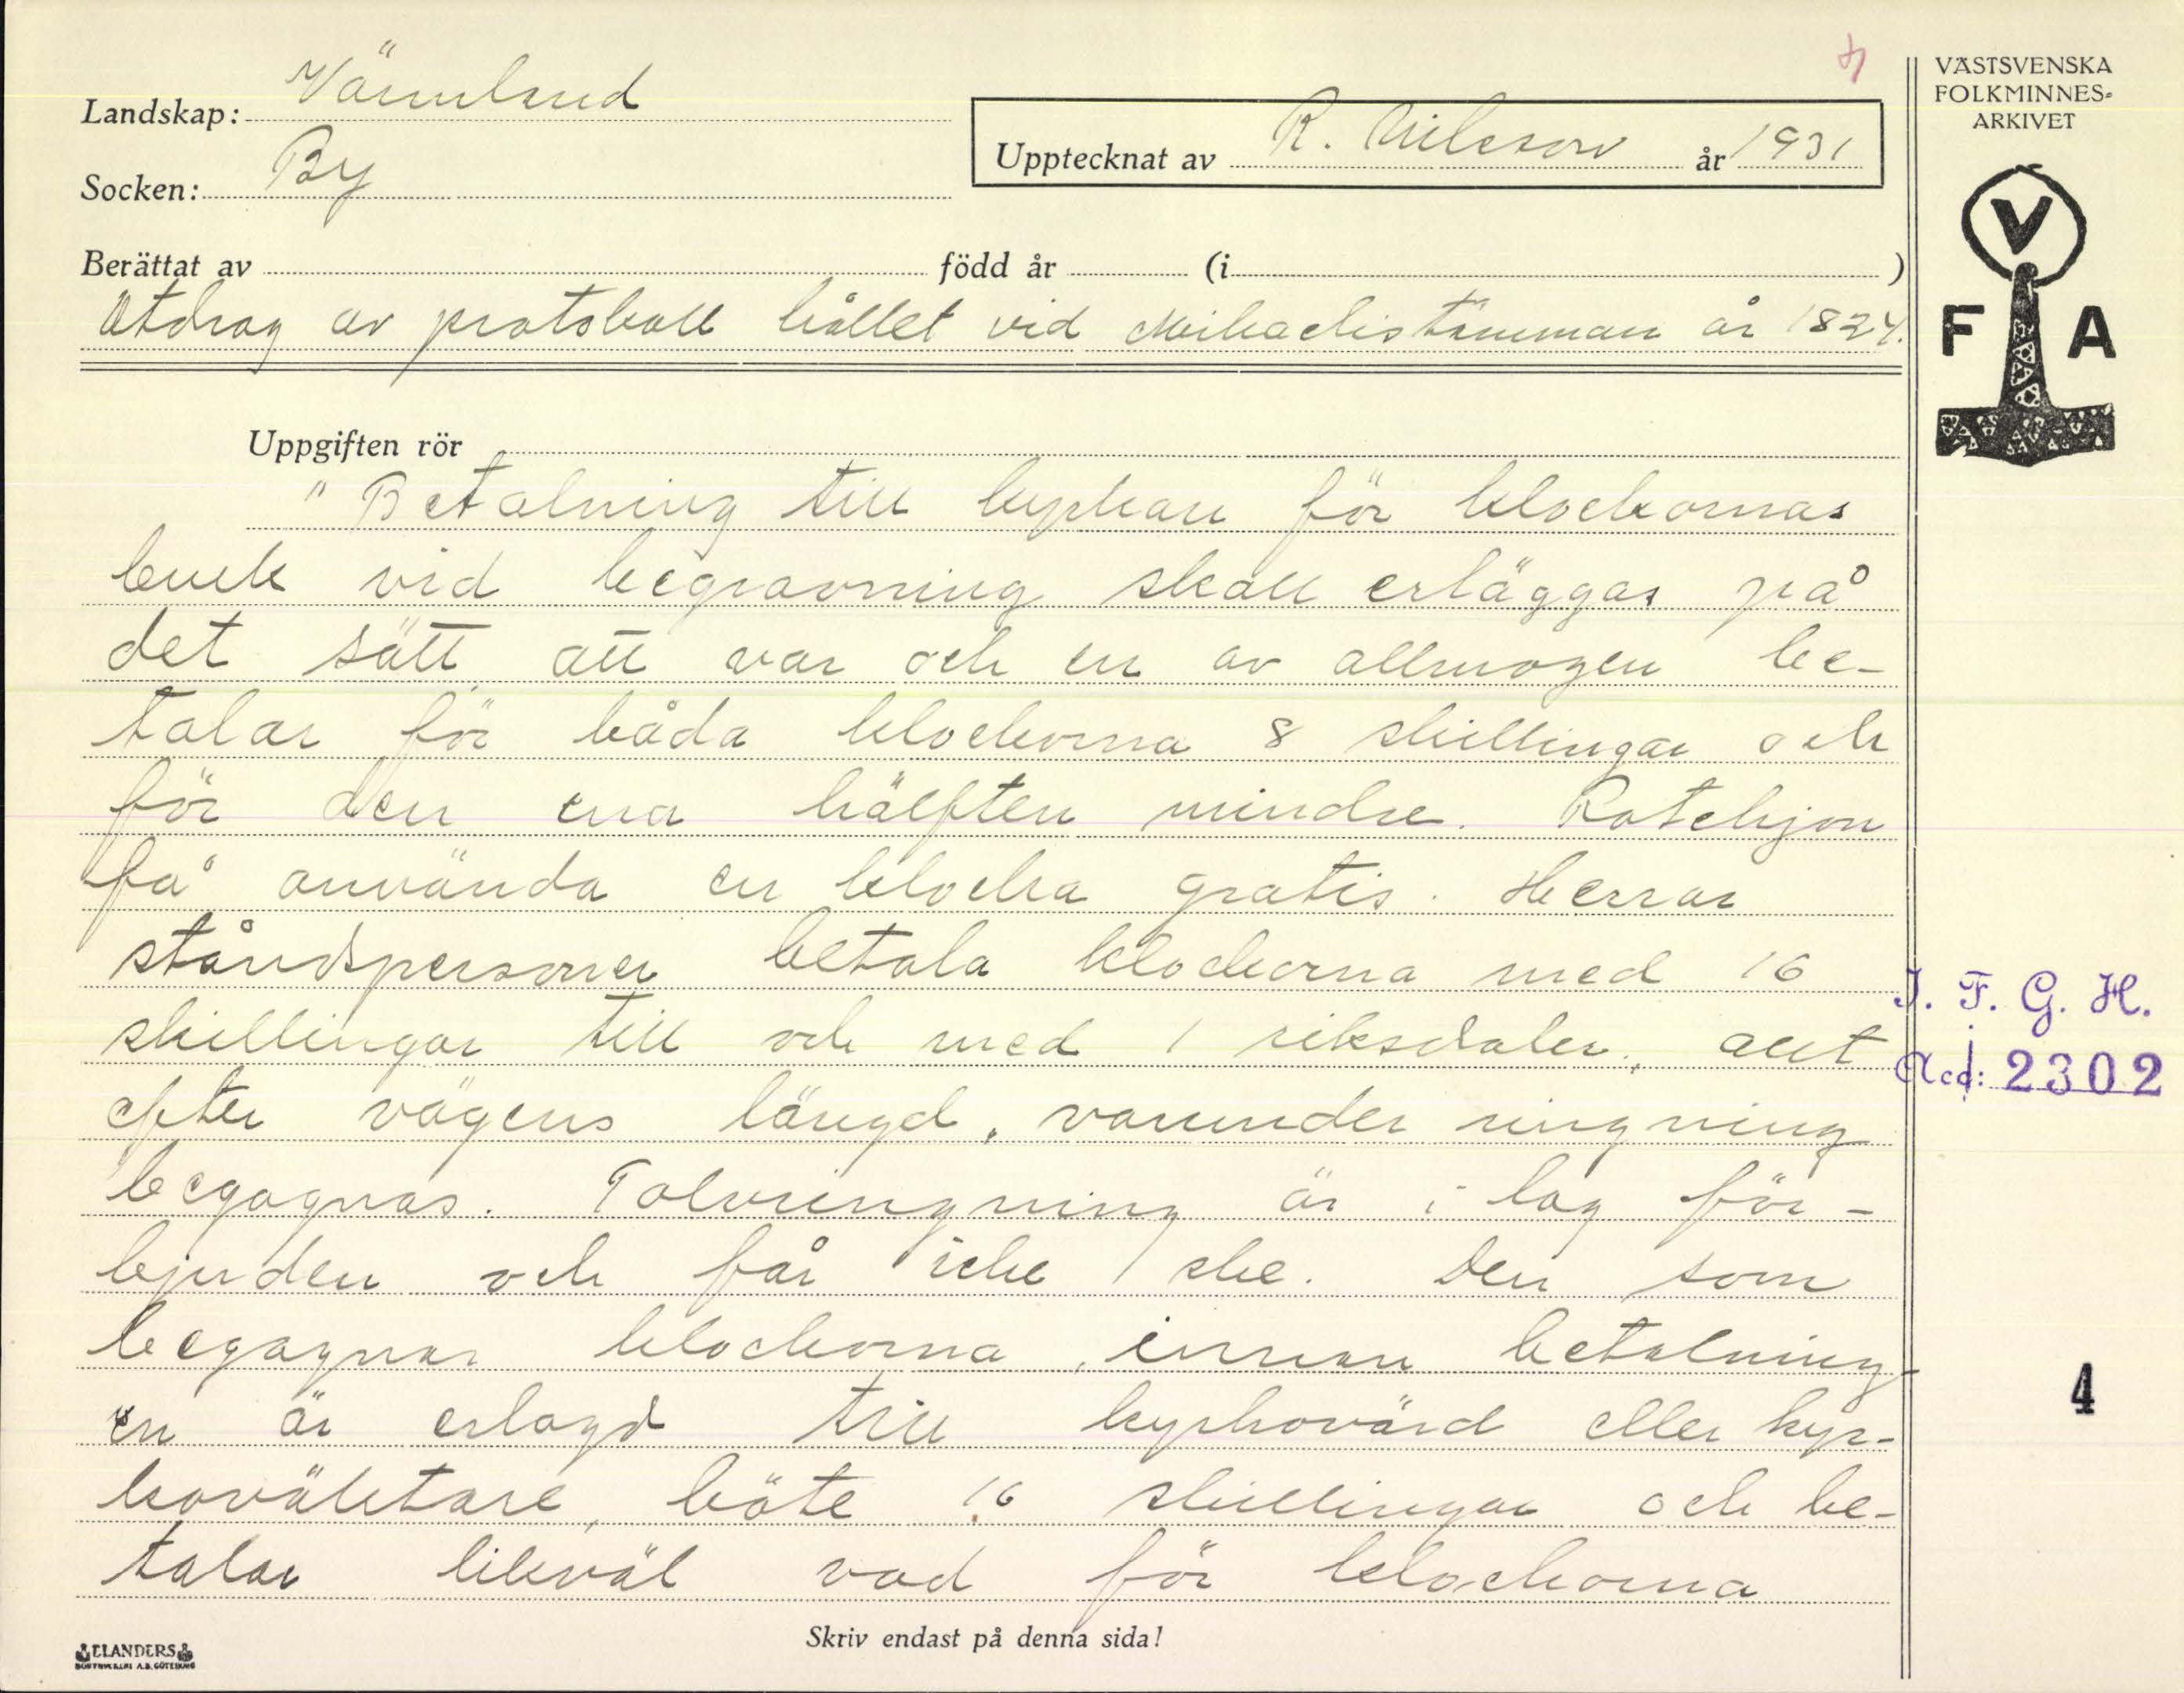 Landskap: Värmland
Socken: By
Upptecknat av R. Nilsson år 1931
Berättat av född år (i )
Utdrag av protokoll hållet vid Mikaelistämman år 1824.
Uppgiften rör
"Betalning till kyrkan för klockornas
bruk vid begravning skall erläggas på
det sätt att var och en av allmogen be-
talar för båda klockorna 8 skillingar och
för den ena hälften mindre. Rotehjon
få använda en klocka gratis. Herrar
ståndspersoner betala klockorna med 16
skillingar till och med 1 riksdaler, allt
efter vägens längd, varunder ringning
begagnas. Tolvringning är i lag för-
bjuden och får icke ske. Den som
begagnar klockorna, innan betalning-
en är erlagd till kyrkovärd eller kyr-
koväktare, böte 16 skillingar och be-
talar likväl vad för klockorna
Skriv endast på denna sida!
ELANDERS
BOKTRYCKERI A.B. GÖTEBORG
VÄSTSVENSKA
FOLKMINNES-
ARKIVET
V
F A
I. F. G. H.
Acc: 2302
4